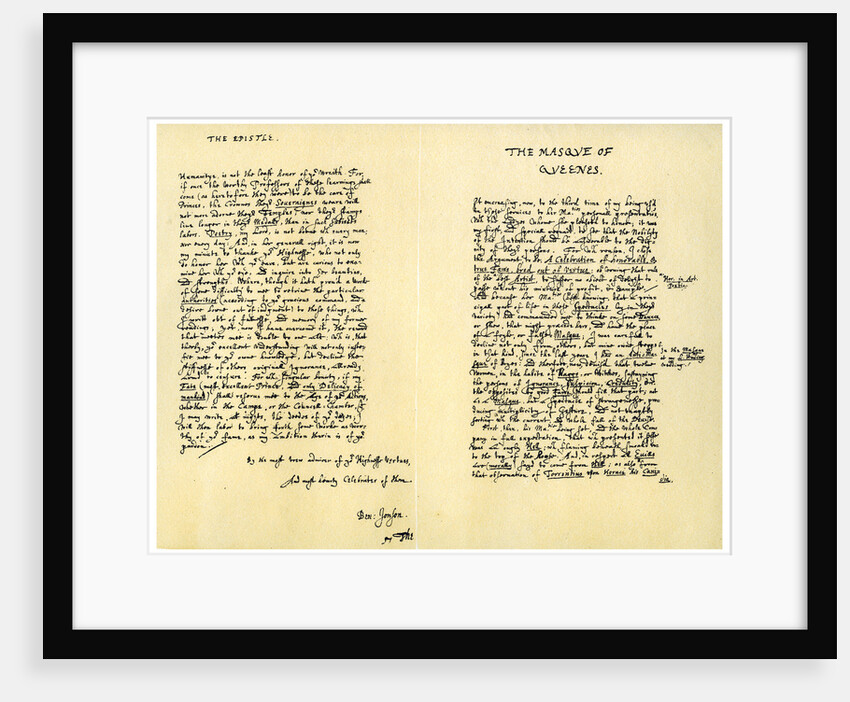 THE EPISTLE.
Humanitye, is not the least honor of yor Wreath. For,
if once the Worthy Professors of these learnings shall
come (as heretofore they were) to be the care of
Princes, the Crownes theyr Soueraignes weare will
not more adorne theyr Temples; nor theyr stamps
liue longer in theyr Medalls, than in such Subiects
labors. Poetry, my Lord, is not borne wth euery man;
nor euery day: And, in her generall right, it is now
my minute to thanke yor Highnesse, who not only
do honor her wth yor eare, but are curious to exa-
mine her wth yor eye, and inquire into her beauties,
and strengths. Where, though it hath proou'd a Worke
of some difficulty to mee to retriue the particular
authorities (according to yor gracious command, and a
desire borne out of iudgment) to those things, wch
I writt out of fullnesse, and memory of my former
readings; Yet, now I haue ouercome it, the reward
that meetes mee is double to one act: wch is, that
therby, yor excellent vnderstanding will not only iustifie
mee to yor owne knowledge, but decline the
stiffnesse of others originall Ignorance, allready
armd to censure. For wch singular bounty, if my
Fate (most excellent Prince, and only Delicacy of
mankind) shall reserue mee to the Age of yor Actions,
whether in the Campe, or the Councell-Chamber, yt
I may write, at nights, the deedes of yor dayes;
I will then labor to bring forth some Worke as wor-
thy of yor fame, as my Ambition therin is of yor
pardon.
By the most trew admirer of yor Highnesse Vertues,
And most hearty Celebrater of them.
Ben: Jonson.
The
THE MASQVE OF
QVEENES.
It encreasing, now, to the third time of my being vs'd
in these seruices to her Maties personall presentations,
wth the Ladyes whome she pleaseth to honor; it was
my first, and speciall reguard, to see that the Nobility
of the Inuention should be answerable to the dig-
nity of theyr persons. For wch reason, I chose
the Argument, to be, A Celebration of honorable, &
true Fame, bred out of Vertue: obseruing that rule
of the best Artist, to suffer no obiect of delight to
passe without his mixture of profit, & example.
Hor. in Art.
Poetic.
And because her Matie (best knowing, that a princi-
pall part of life in these Spectacles lay in theyr
variety) had commaunded mee to think on some Daunce,
or shew, that might præcede hers, and haue the place
of a foyle, or false-Masque; I was carefull to
decline not only from others, but mine owne stepps
in that kind, since the last yeare I had an Anti-Mas-
que of Boyes: and therefore, now, deuis'd that twelue
In the Masque
at my L. Hading.
wedding.
Women, in the habite of Haggs, or Witches, sustayning
the persons of Ignorance, Suspicion, Credulity, &c.
the opposites to good Fame, should fill that part; not
as a Masque, but a spectacle of strangenesse, pro-
ducing multiplicity of Gesture, and not vnaptly
sorting wth the current, and whole fall of the Deuise.
First, then, his Matie being set, and the whole Com-
pany in full expectation, that wch presented it selfe
was an ougly Hell; wch, flaming beneath, smoakd vnto
to the top of the Roofe. And, in respect all Euills
are (morally) sayd to come from Hell; as also from
that obseruation of Torrentius vpon Horace his Cani-
dia,